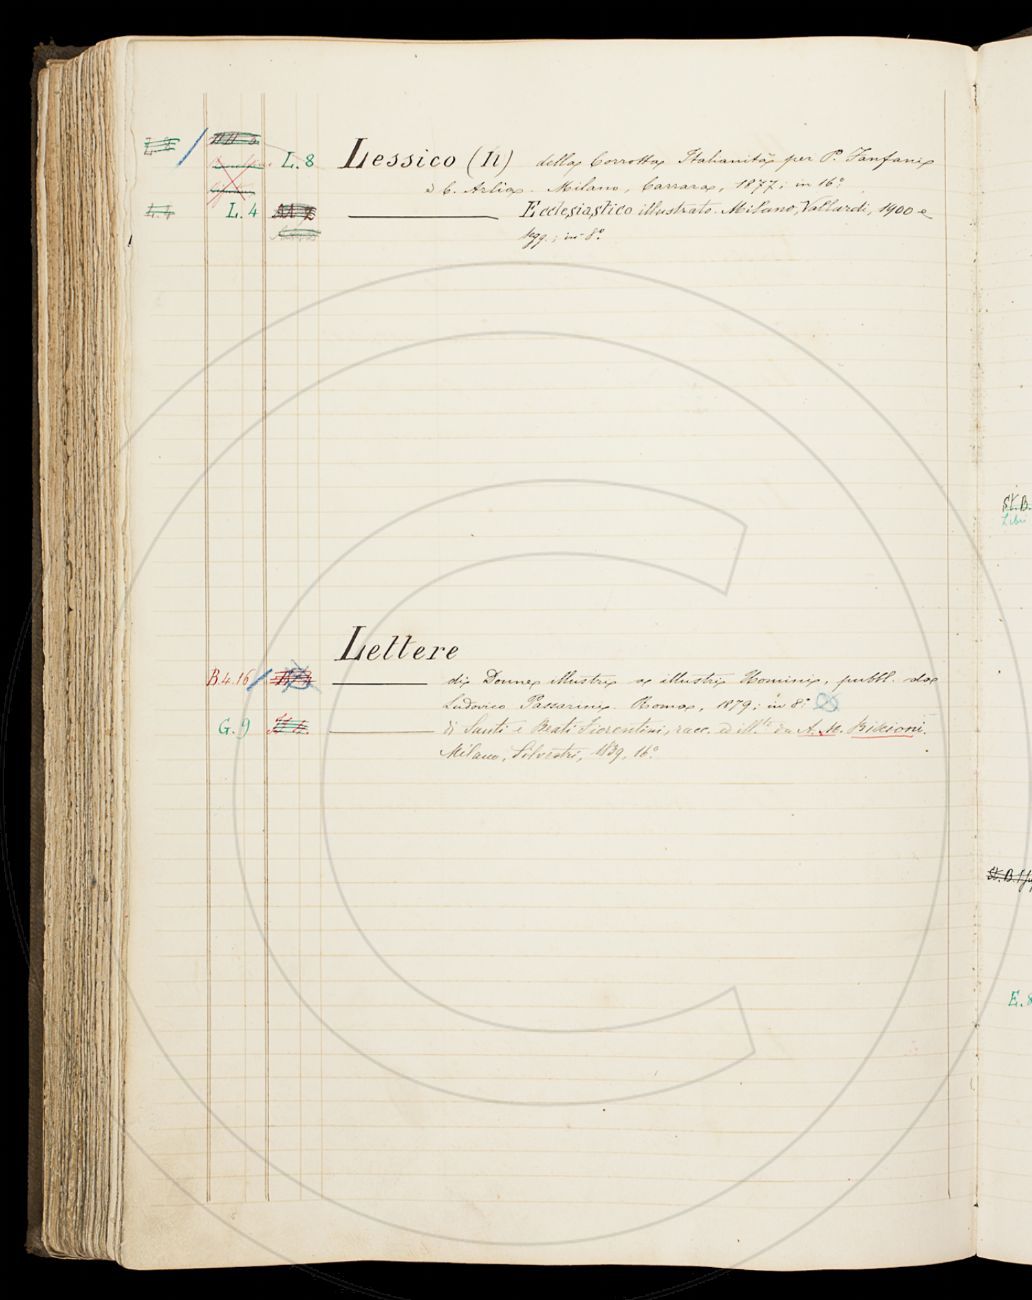 L. 8 L. 8 Lessico (Il) della Corrotta Italianità per P. Fanfani
e C. Arlia. Milano, Carrara, 1877; in 16°.
4. 4 L. 4 Ecclesiastico illustrato. Milano, Vallardi, 1900 e
segg.; in 8°.
St. B.
Libri
Lettere
B 4. 16 di Donne illustri a illustri Uomini, pubbl. da
Ludovico Passarini. Roma, 1879; in 8°.
G. 9 di Santi e Beati Fiorentini, racc. ed ill.te da A. M. Biscioni.
Milano, Silvestri, 1839, 16°.
St. B.
E. 8